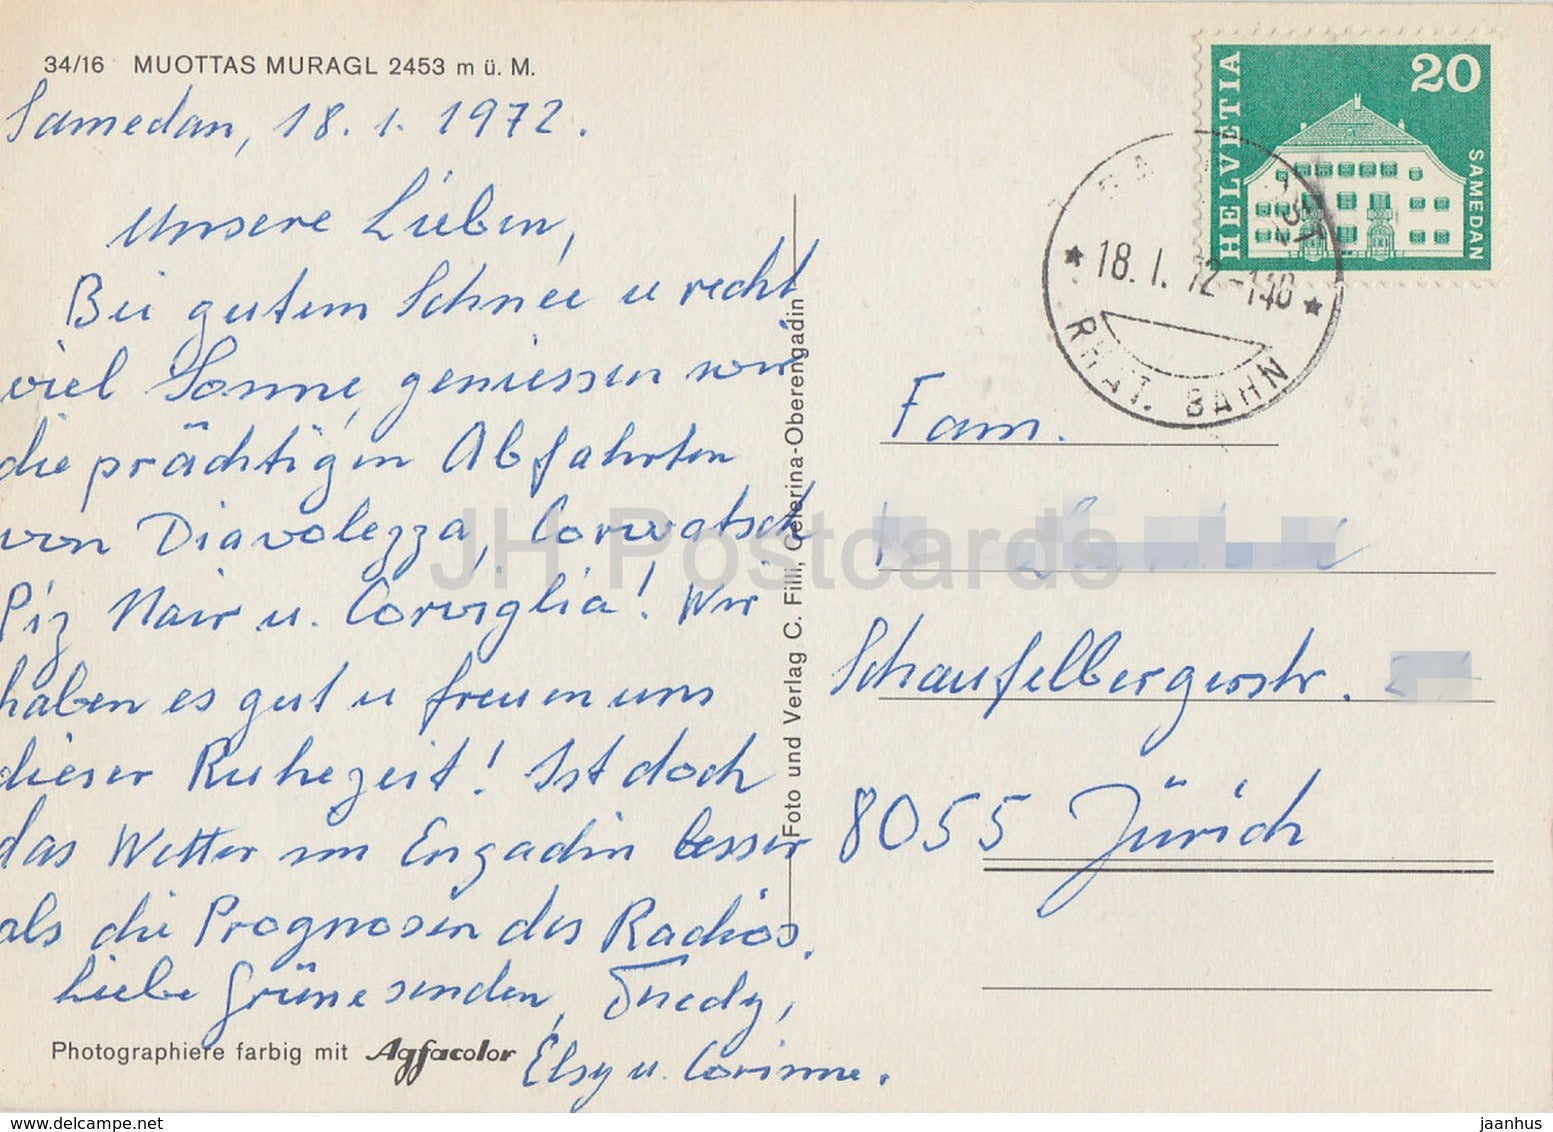 34/16 MUOTTAS MURAGL 2453 m ü. M.
Samedan, 18. 1. 1972.
Unsere Lieben,
Bei gutem Schnee u recht
viel Sonne, geniessen wir
die prächtigen Abfahrten
von Diavolezza, Corvatsch
Piz Nair u. Corviglia! Wir
haben es gut u freuen uns
dieser Ruhezeit! Ist doch
das Wetter im Engadin besser
als die Prognosen des Radios.
Liebe Grüsse senden,
Elsy u. Corinne.
Photographiere farbig mit Agfacolor
Foto und Verlag C. Filli, Celerina-Oberengadin
HELVETIA
20
SAMEDAN
18. I. 72
RHÄT. BAHN
Fam.
Schaufelbergerstr.
8055 Zürich
JH Postcards
jaanhus